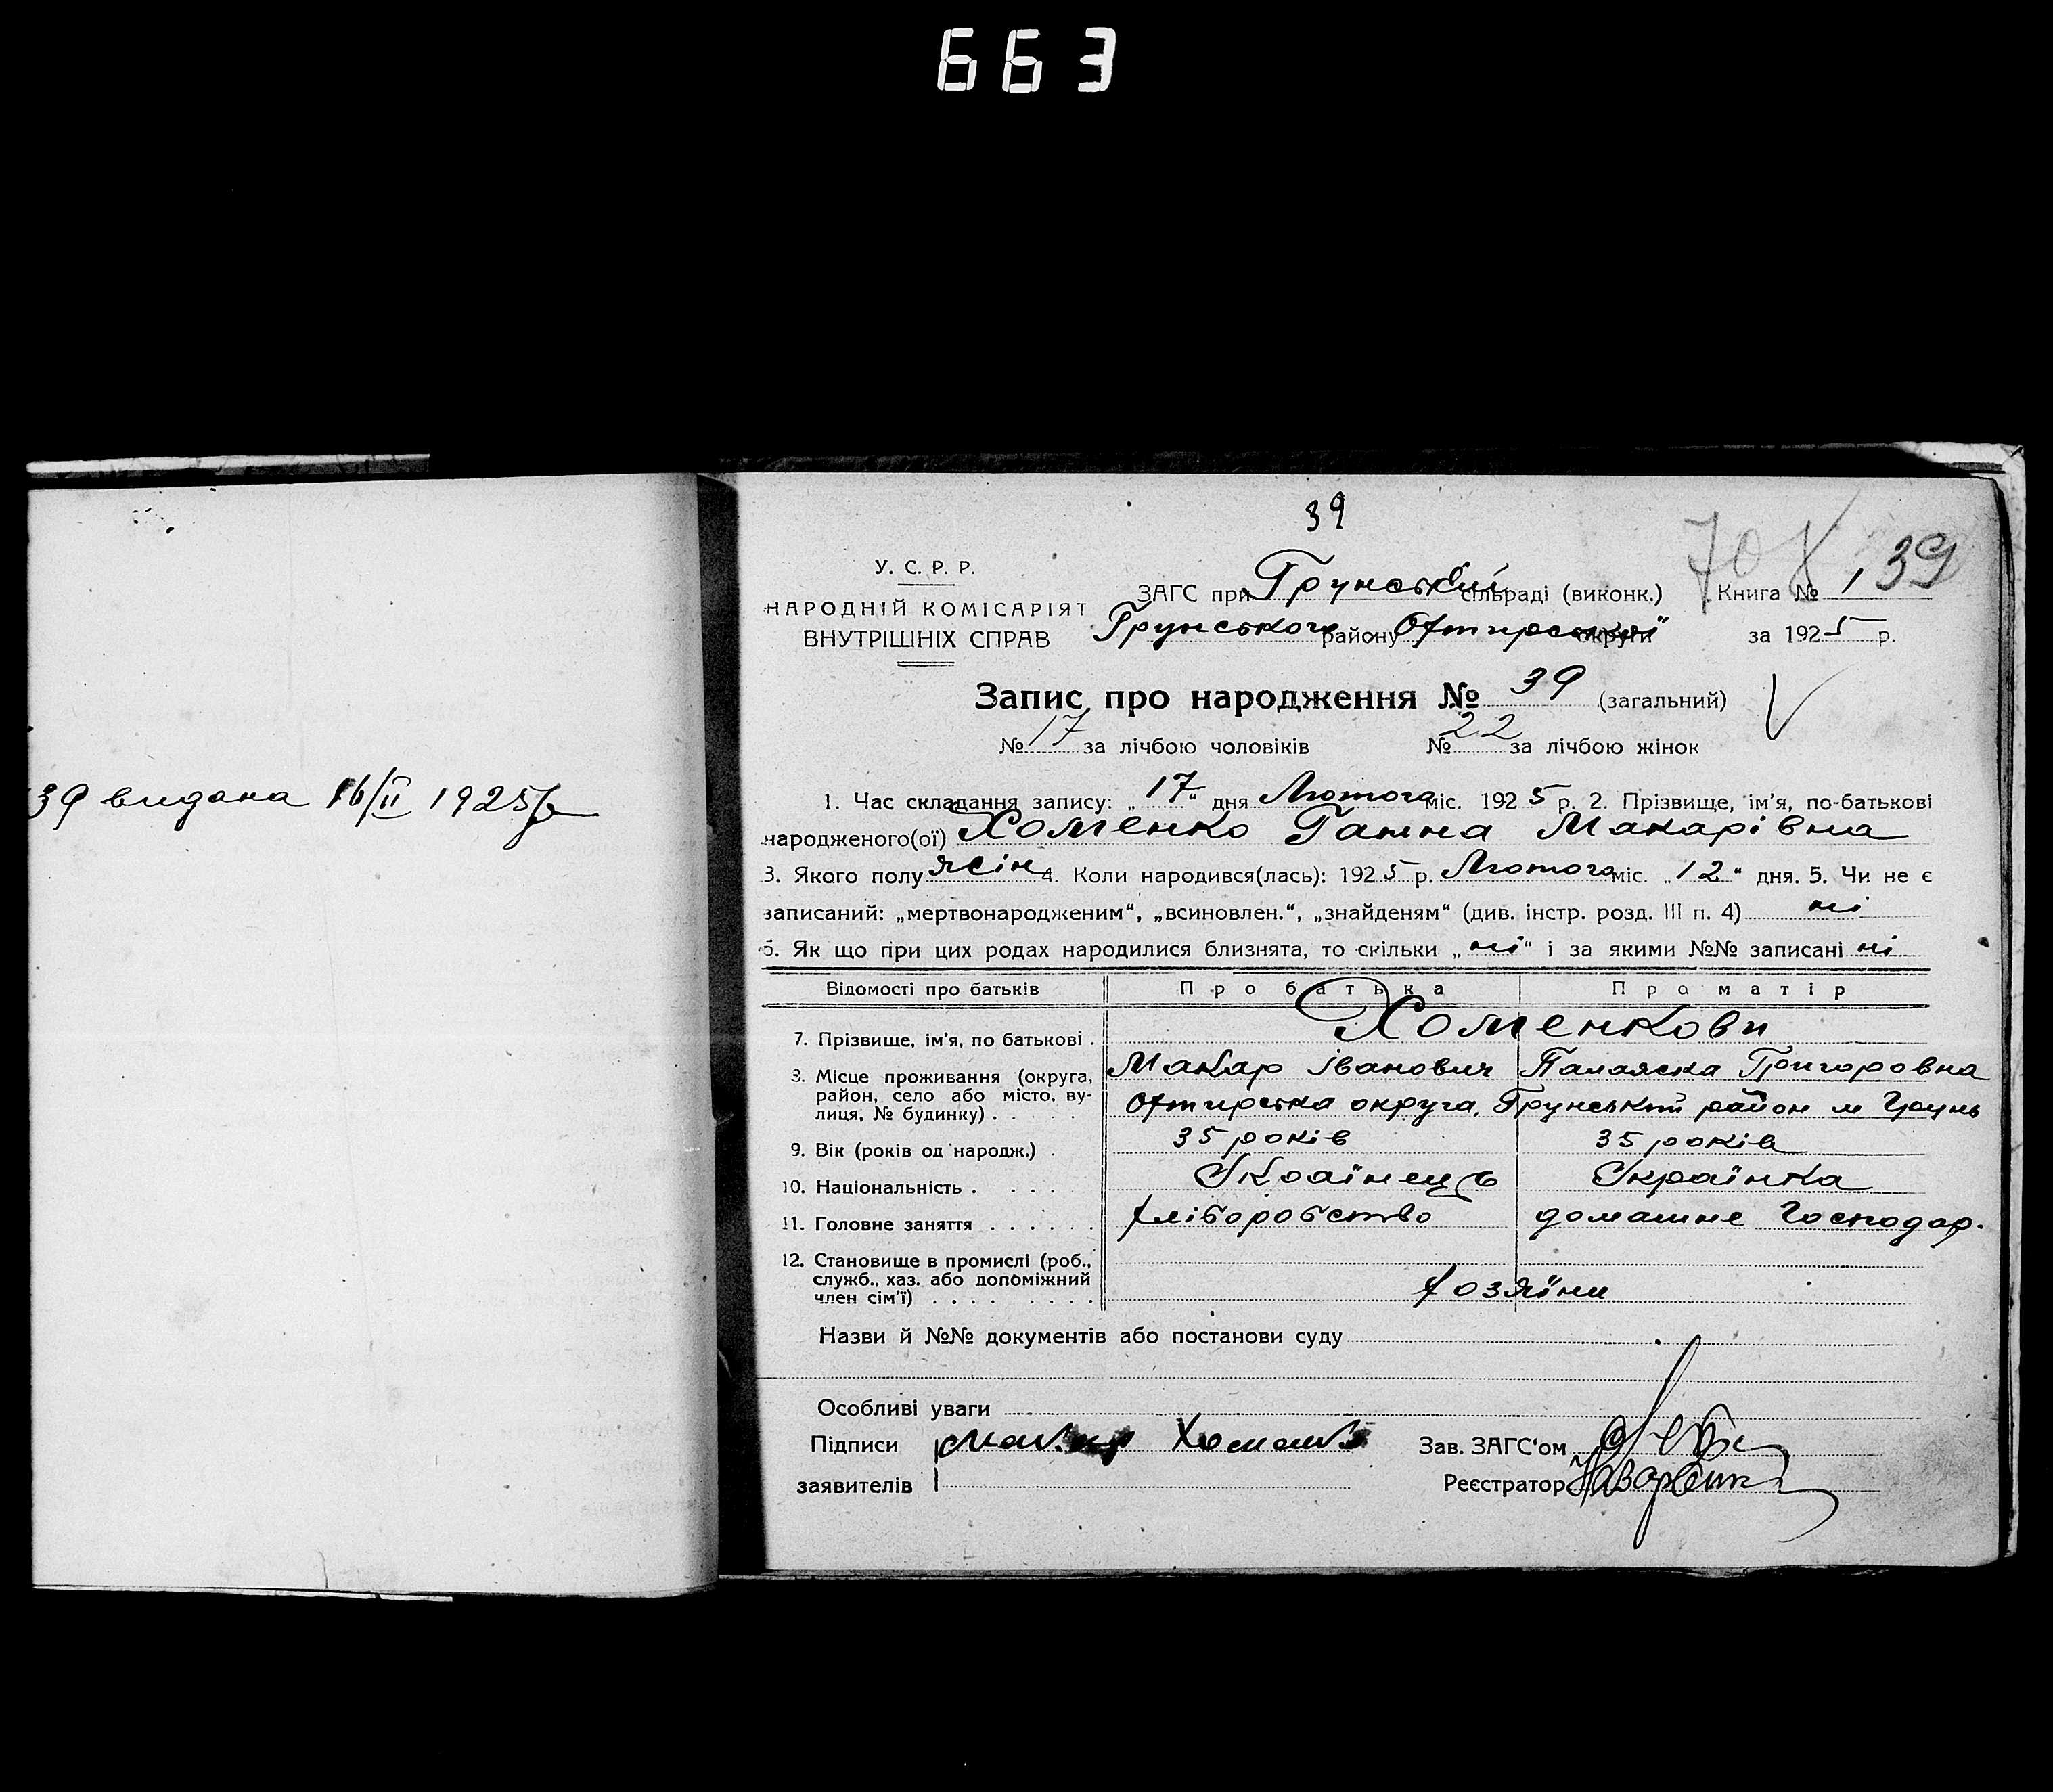 663
39
70
39
У. С. Р. Р.
НАРОДНІЙ КОМІСАРІЯТ
ВНУТРІШНІХ СПРАВ
ЗАГС при Грунській сільраді (виконк.) Книга № 1
Грунського району Охтирської округи за 1925 р.
Запис про народження № 39 (загальний)
№ 17 за лічбою чоловіків № 22 за лічбою жінок
39 видана 16/II 1925р
1. Час складання запису: „17“ дня Лютого міс. 1925 р. 2. Прізвище, ім'я, по-батькові
народженого(ої) Хоменко Ганна Макарівна
3. Якого полу жін 4. Коли народився(лась): 1925 р. Лютого міс. „12“ дня. 5. Чи не є
записаний: „мертвонародженим“, „всиновлен.“, „знайденям“ (див. інстр. розд. III п. 4) ні
6. Як що при цих родах народилися близнята, то скільки „ні“ і за якими №№ записані ні
Відомості про батьків Про батька Про матір
7. Прізвище, ім'я, по батькові . Хоменкови
Макар Іванович Палажка Григоровна
8. Місце проживання (округа,
район, село або місто, ву-
лиця, № будинку) . . . . Охтирська округа, Грунський район м Грунь
9. Вік (років од народж.) . 35 років 35 років
10. Національність . . . . Українець Українка
11. Головне заняття . . . . . . хліборобство домашнє господар.
12. Становище в промислі (роб.,
служб., хаз. або допоміжний
член сім'ї) . . . . . . . . хозяїни
Назви й №№ документів або постанови суду
Особливі уваги
Підписи Макар Хоменко Зав. ЗАГС'ом
заявителів Реєстратор